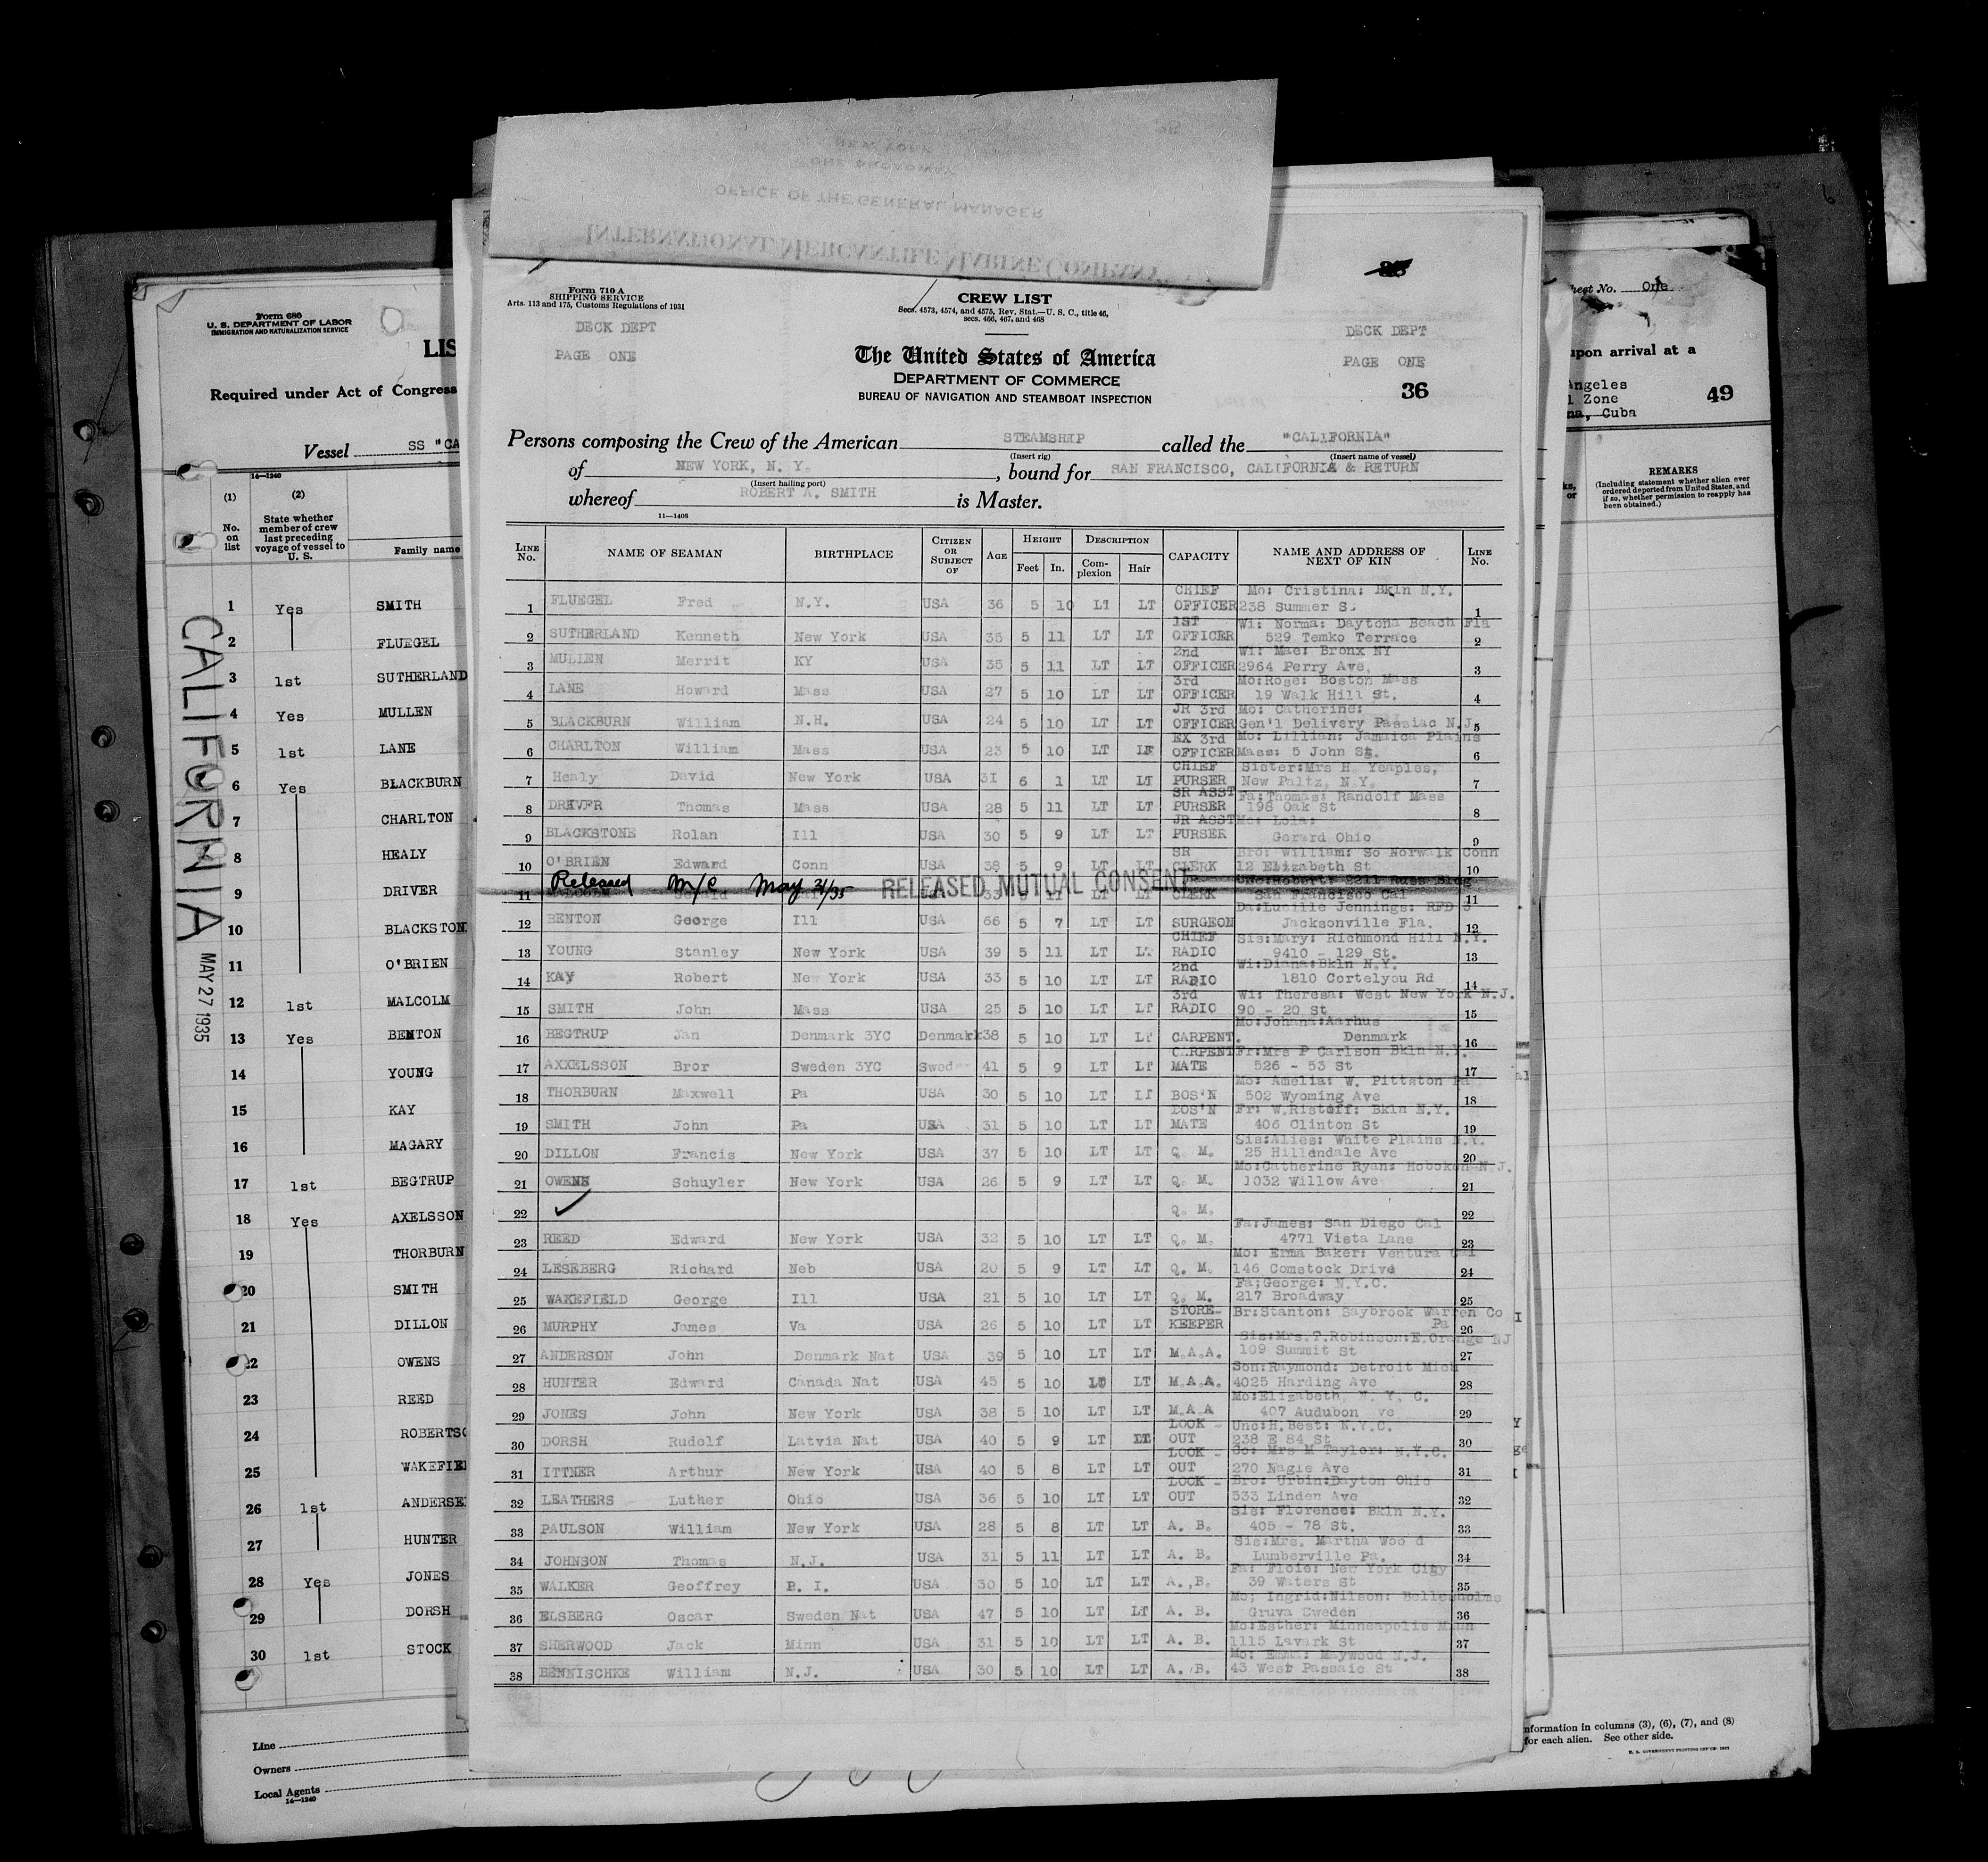 INTERNATIONAL MERCANTILE MARINE COMPANY
OFFICE OF THE GENERAL MANAGER
ONE BROADWAY
NEW YORK
Form 680
U. S. DEPARTMENT OF LABOR
IMMIGRATION AND NATURALIZATION SERVICE
LIS
Required under Act of Congress
Vessel SS "CA
14—1240
(1) (2)
No. on list
State whether member of crew last preceding voyage of vessel to U. S.
Family name
1 Yes SMITH
2 FLUEGEL
3 1st SUTHERLAND
4 Yes MULLEN
5 1st LANE
6 Yes BLACKBURN
7 CHARLTON
8 HEALY
9 DRIVER
10 BLACKSTON
11 O'BRIEN
12 1st MALCOLM
13 Yes BENTON
14 YOUNG
15 KAY
16 MAGARY
17 1st BEGTRUP
18 Yes AXELSSON
19 THORBURN
20 SMITH
21 DILLON
22 OWENS
23 REED
24 ROBERTSO
25 WAKEFIE
26 1st ANDERSE
27 HUNTER
28 Yes JONES
29 DORSH
30 1st STOCK
CALIFORNIA
MAY 27 1935
Line
Owners
Local Agents
14—1240
Form 710 A
SHIPPING SERVICE
Arts. 113 and 175, Customs Regulations of 1931
DECK DEPT
PAGE ONE
CREW LIST
Secs. 4573, 4574, and 4575, Rev. Stat.—U. S. C., title 46,
secs. 466, 467, and 468
The United States of America
DEPARTMENT OF COMMERCE
BUREAU OF NAVIGATION AND STEAMBOAT INSPECTION
DECK DEPT
PAGE ONE
36
Persons composing the Crew of the American STEAMSHIP called the "CALIFORNIA"
(Insert rig) (Insert name of vessel)
of NEW YORK, N. Y. , bound for SAN FRANCISCO, CALIFORNIA & RETURN
(Insert hailing port)
whereof ROBERT A. SMITH is Master.
11—1408
LINE No. NAME OF SEAMAN BIRTHPLACE CITIZEN OR SUBJECT OF AGE HEIGHT Feet In. DESCRIPTION Complexion Hair CAPACITY NAME AND ADDRESS OF NEXT OF KIN LINE No.
1 FLUEGEL Fred N.Y. USA 36 5 10 LT LT CHIEF OFFICER Mo: Cristina: Bkln N.Y. 238 Summer S. 1
2 SUTHERLAND Kenneth New York USA 35 5 11 LT LT 1ST OFFICER Wi: Norma: Daytona Beach Fla 529 Temko Terrace 2
3 MULLEN Merrit KY USA 35 5 11 LT LT 2nd OFFICER Wi: Mae: Bronx NY 2964 Perry Ave. 3
4 LANE Howard Mass USA 27 5 10 LT LT 3rd OFFICER Mo:Rose: Boston Mass 19 Walk Hill St. 4
5 BLACKBURN William N.H. USA 24 5 10 LT LT JR 3rd OFFICER Mo: Catherine: Gen'l Delivery Passiac N.J. 5
6 CHARLTON William Mass USA 23 5 10 LT LT EX 3rd OFFICER Mo: Lillian: Jamaica Plains Mass: 5 John St. 6
7 Healy David New York USA 31 6 1 LT LT CHIEF PURSER Sister:Mrs H. Yeaples, New Paltz, N.Y. 7
8 DRIVER Thomas Mass USA 28 5 11 LT LT SR ASST PURSER Fa:Thomas: Randolf Mass 198 Oak St 8
9 BLACKSTONE Rolan Ill USA 30 5 9 LT LT JR ASST PURSER Mo: Lola: Gerard Ohio 9
10 O'BRIEN Edward Conn USA 38 5 9 LT LT SR CLERK Bro: William: So Norwalk Conn 12 Elizabeth St 10
Released M/C May 31/35 RELEASED MUTUAL CONSENT
11 CLERK San Francisco Cal 11
12 BENTON George Ill USA 66 5 7 LT LT SURGEON Da:Lucille Jennings: RFD 3 Jacksonville Fla. 12
13 YOUNG Stanley New York USA 39 5 11 LT LT CHIEF RADIO Sis:Mary: Richmond Hill N.Y. 9410 - 129 St. 13
14 KAY Robert New York USA 33 5 10 LT LT 2nd RADIO Wi:Diana:Bkln N.Y. 1810 Cortelyou Rd 14
15 SMITH John Mass USA 25 5 10 LT LT 3rd RADIO Wi: Theresa: West New York N.J. 90 - 20 St 15
16 BEGTRUP Jan Denmark 3YC Denmark 38 5 10 LT LT CARPENT. Mo:Johana:Aarhus Denmark 16
17 AXXELSSON Bror Sweden 3YC Swed 41 5 9 LT LT CARPENT MATE Fr:Mrs P Carlson Bkln N.Y. 526 - 53 St 17
18 THORBURN Maxwell Pa USA 30 5 10 LT LT BOS'N Mo: Amelia: W. Pittston Pa 502 Wyoming Ave 18
19 SMITH John Pa USA 31 5 10 LT LT BOS'N MATE Fr: W.Ristoff: Bkln N.Y. 406 Clinton St 19
20 DILLON Francis New York USA 37 5 10 LT LT Q. M. Sis:Alies: White Plains N.Y. 25 Hillendale Ave 20
21 OWENS Schuyler New York USA 26 5 9 LT LT Q. M. Mo:Catherine Ryan: Hoboken N.J. 1032 Willow Ave 21
22 Q. M. 22
23 REED Edward New York USA 32 5 10 LT LT Q. M. Fa:James: San Diego Cal 4771 Vista Lane 23
24 LESEBERG Richard Neb USA 20 5 9 LT LT Q. M. Mo: Erma Baker: Ventura Cal 146 Comstock Drive 24
25 WAKEFIELD George Ill USA 21 5 10 LT LT Q. M. Fa;George: N.Y.C. 217 Broadway 25
26 MURPHY James Va USA 26 5 10 LT LT STORE-KEEPER Br:Stanton: Saybrook Warren Co Pa 26
27 ANDERSON John Denmark Nat USA 39 5 10 LT LT M.A.A. Sis:Mrs.T.Robinson:E.Orange NJ 109 Summit St 27
28 HUNTER Edward Canada Nat USA 45 5 10 LT LT M.A.A. Son:Raymond: Detroit Mich 4025 Harding Ave 28
29 JONES John New York USA 38 5 10 LT LT M.A.A Mo:Elizabeth, N. Y. C. 407 Audubon Ave 29
30 DORSH Rudolf Latvia Nat USA 40 5 9 LT LT LOOK - OUT Unc:H.Best: N.Y.C. 238 E 84 St 30
31 ITTNER Arthur New York USA 40 5 8 LT LT LOOK - OUT Co: Mrs M Taylor: N.Y.C. 270 Nagle Ave 31
32 LEATHERS Luther Ohio USA 36 5 10 LT LT LOOK - OUT Bro: Urbin:Dayton Ohio 533 Linden Ave 32
33 PAULSON William New York USA 28 5 8 LT LT A. B. Sis: Florence: Bkln N.Y. 405 - 78 St. 33
34 JOHNSON Thomas N.J. USA 31 5 11 LT LT A. B. Sis:Mrs. Martha Woo d Lumberville Pa. 34
35 WALKER Geoffrey P. I. USA 30 5 10 LT LT A. B. Fa: Floie: New York City 39 Waters St 35
36 ELSBERG Oscar Sweden Nat USA 47 5 10 LT LT A. B. Mo; Ingrid:Nilson: Gruva Sweden 36
37 SHERWOOD Jack Minn USA 31 5 10 LT LT A. B. Mo:Esther: Minneapolis Minn 1115 Lavark St 37
38 BENNISCHKE William N.J. USA 30 5 10 LT LT A. B. Mo: Emma: Maywood N.J. 43 West Passaic St 38
heet No. One
upon arrival at a
Angeles
l Zone
na, Cuba
49
REMARKS
(Including statement whether alien ever ordered deported from United States, and if so, whether permission to reapply has been obtained.)
nformation in columns (3), (6), (7), and (8)
for each alien. See other side.
U. S. GOVERNMENT PRINTING OFFICE